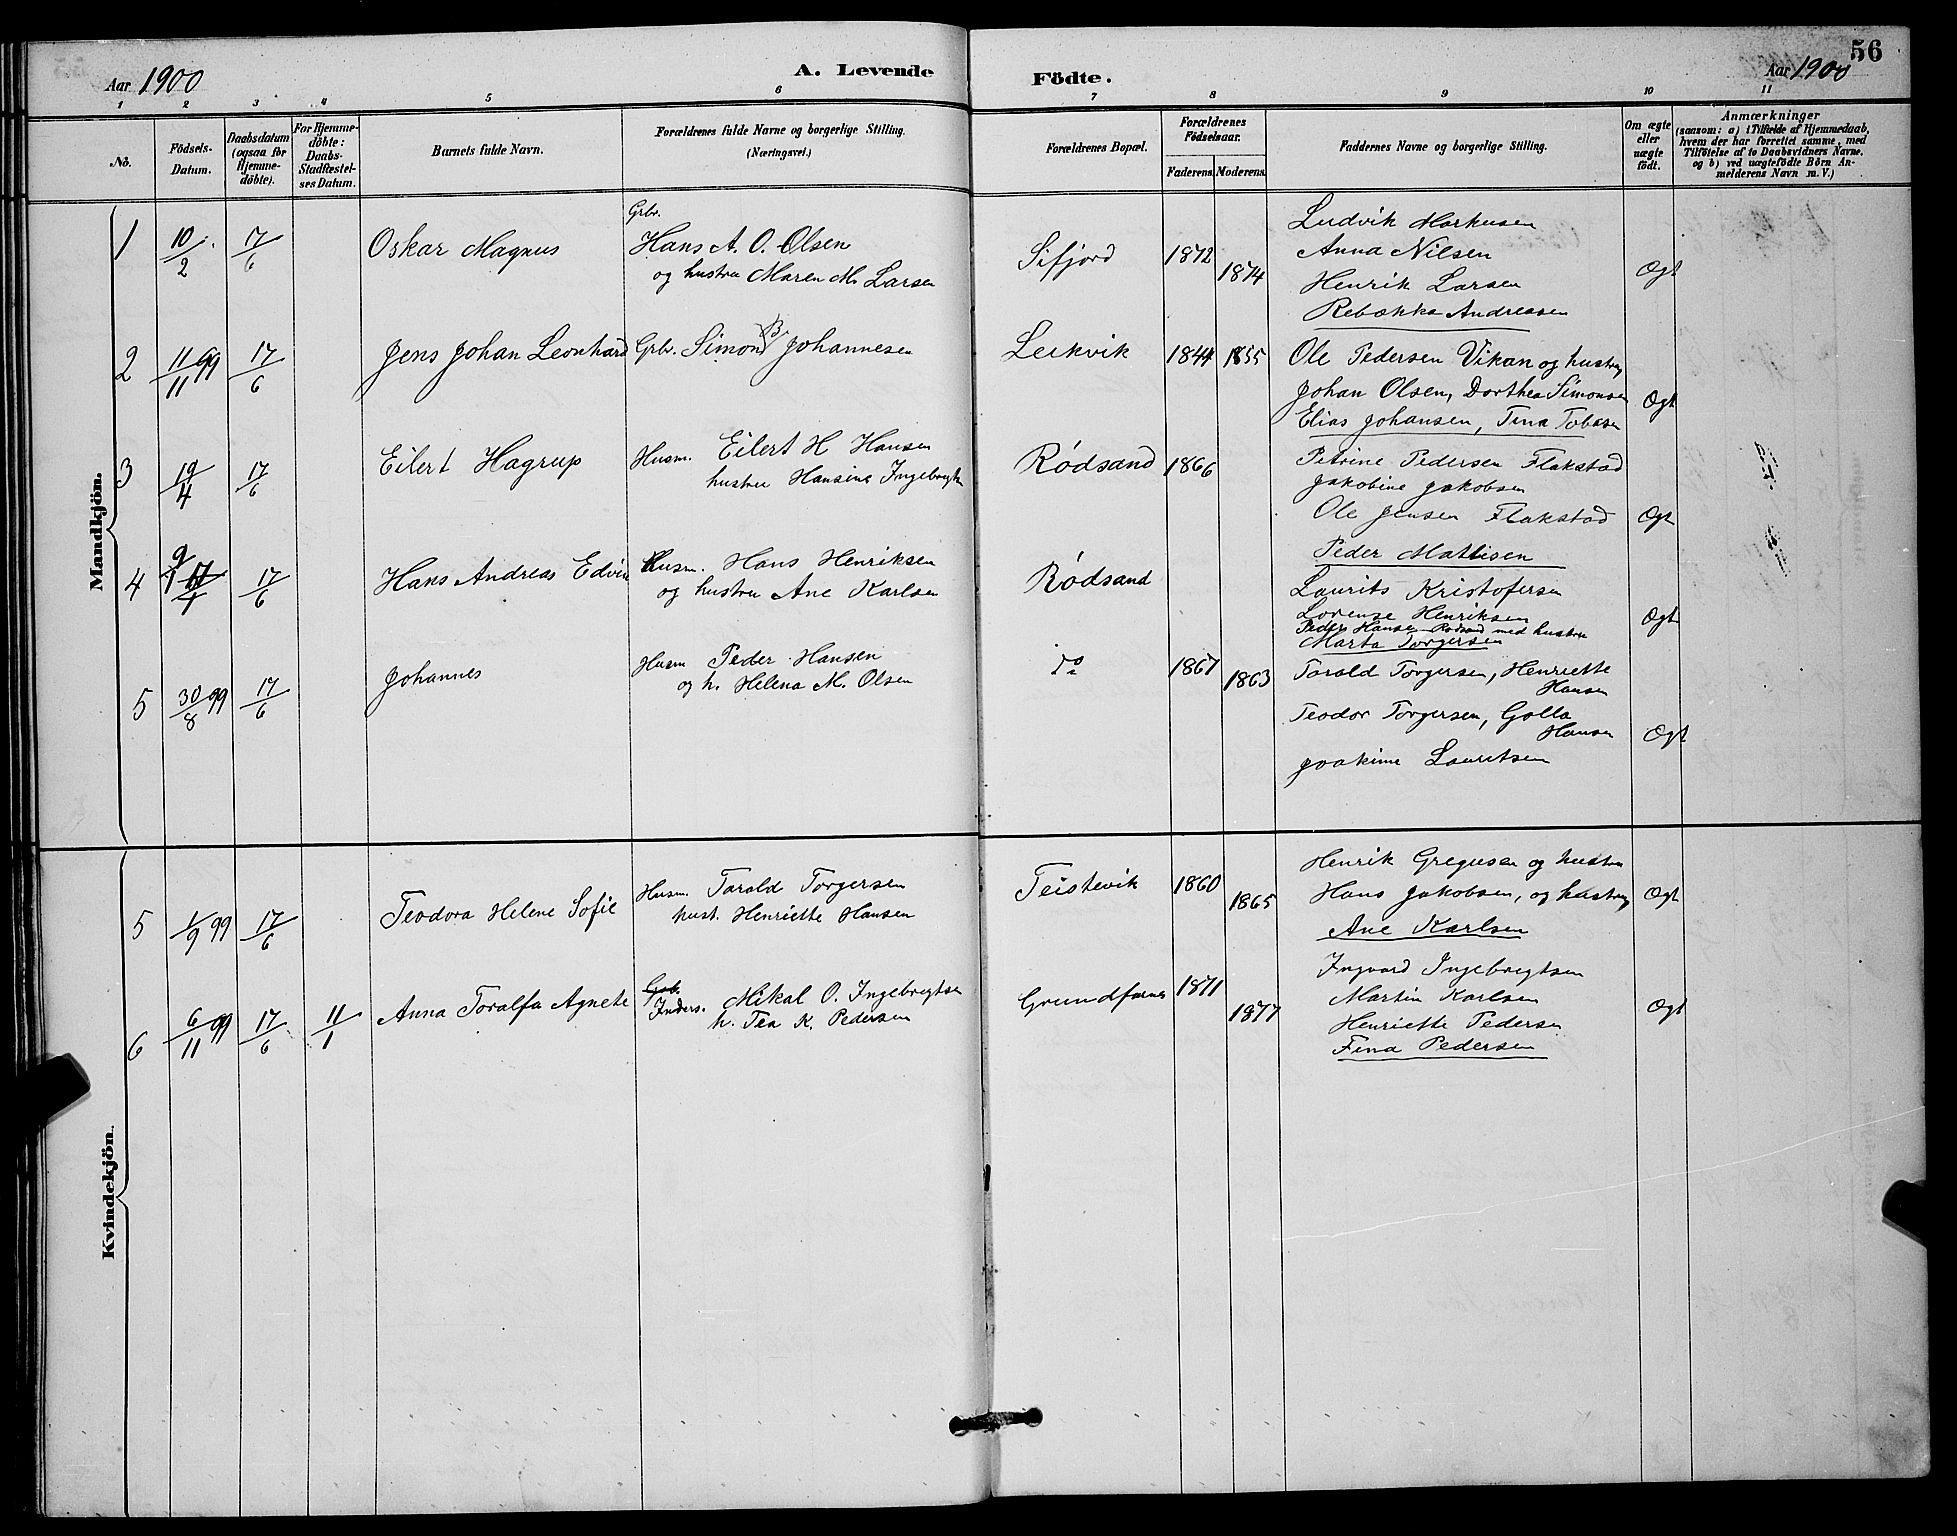 56
Aar 1900
A. Levende
Födte.
Aar 1900
1 2 3 4 5 6 7 8 9 10 11
No.
Födsels-
Datum.
Daabsdatum
(ogsaa för
Hjemme-
döbte).
For Hjemme-
döbte:
Daabs-
Stadfæstel-
ses Datum.
Barnets fulde Navn.
Forældrenes fulde Navne og borgerlige Stilling.
(Næringsvei.)
Forældrenes Bopæl.
Forældrenes
Födselsaar.
Faderens. Moderens.
Faddernes Navne og borgerlige Stilling.
Om ægte
eller
uægte
födt.
Anmærkninger
(saasom: a) i Tilfælde af Hjemmedaab,
hvem der har forrettet samme, med
Tilföielse af to Daabsvidners Navne,
og b) ved uægtefödte Börn An-
melderens Navn m. V.)
Mandkjön.
1 10/2 17/6 Oskar Magnus
Grbr.
Hans A. O. Olsen
og hustru Maren M. Larsen
Sifjord 1872 1874
Ludvik Markusen
Anna Nilsen
Henrik Larsen
Rebekka Andreasen
Ægt
2 11/11 99 17/6 Jens Johan Leonhard
Grbr. Simon B. Johannesen
Leikvik 1844 1855
Ole Pedersen Vikan og hustru
Johan Olsen, Dorthea Simonsen
Elias Johansen, Tina Tobiasen
Ægt
3 19/4 17/6 Eilert Hagrup
Husm. Eilert H Hansen
hustru Hansine Ingebrigtsn
Rödsand 1866
Petrine Pedersen Flakstad
Jakobine Jakobsen
Ole Jensen Flakstad
Peder Mattisen
Ægt
4 9/1 17/6 Hans Andreas Edvin
Husm. Hans Henriksen
og hustru Ane Karlsen
Rödsand
Laurits Kristofersen
Lorense Henriksen
Peder Hansen Rödsand med hustru
Marta Torgersen
Ægt
5 30/8 99 17/6 Johannes
Husm Peder Hansen
og h. Helena M. Olsen
do 1867 1863
Torald Torgersen, Henriette
Hansen
Teodor Torgersen, Golla
Hansen
Joakime Lauritsen
Ægt
Kvindekjön.
5 1/9 99 17/6 Teodora Helene Sofie
Husm. Torald Torgersen
hust. Henriette Hansen
Teistevik 1860 1865
Henrik Gregusen og hustru
Hans Jakobsen, og hustru
Ane Karlsen
Ægt
6 6/11 99 17/6 11/1 Anna Toralfa Agnete
Grb.
Inders. Mikal O. Ingebrigtsen
h. Tea K. Pedersen
Grundfarnes 1871 1877
Ingvard Ingebrigtsen
Martin Karlsen
Henriette Pedersen
Fina Pedersen
Ægt